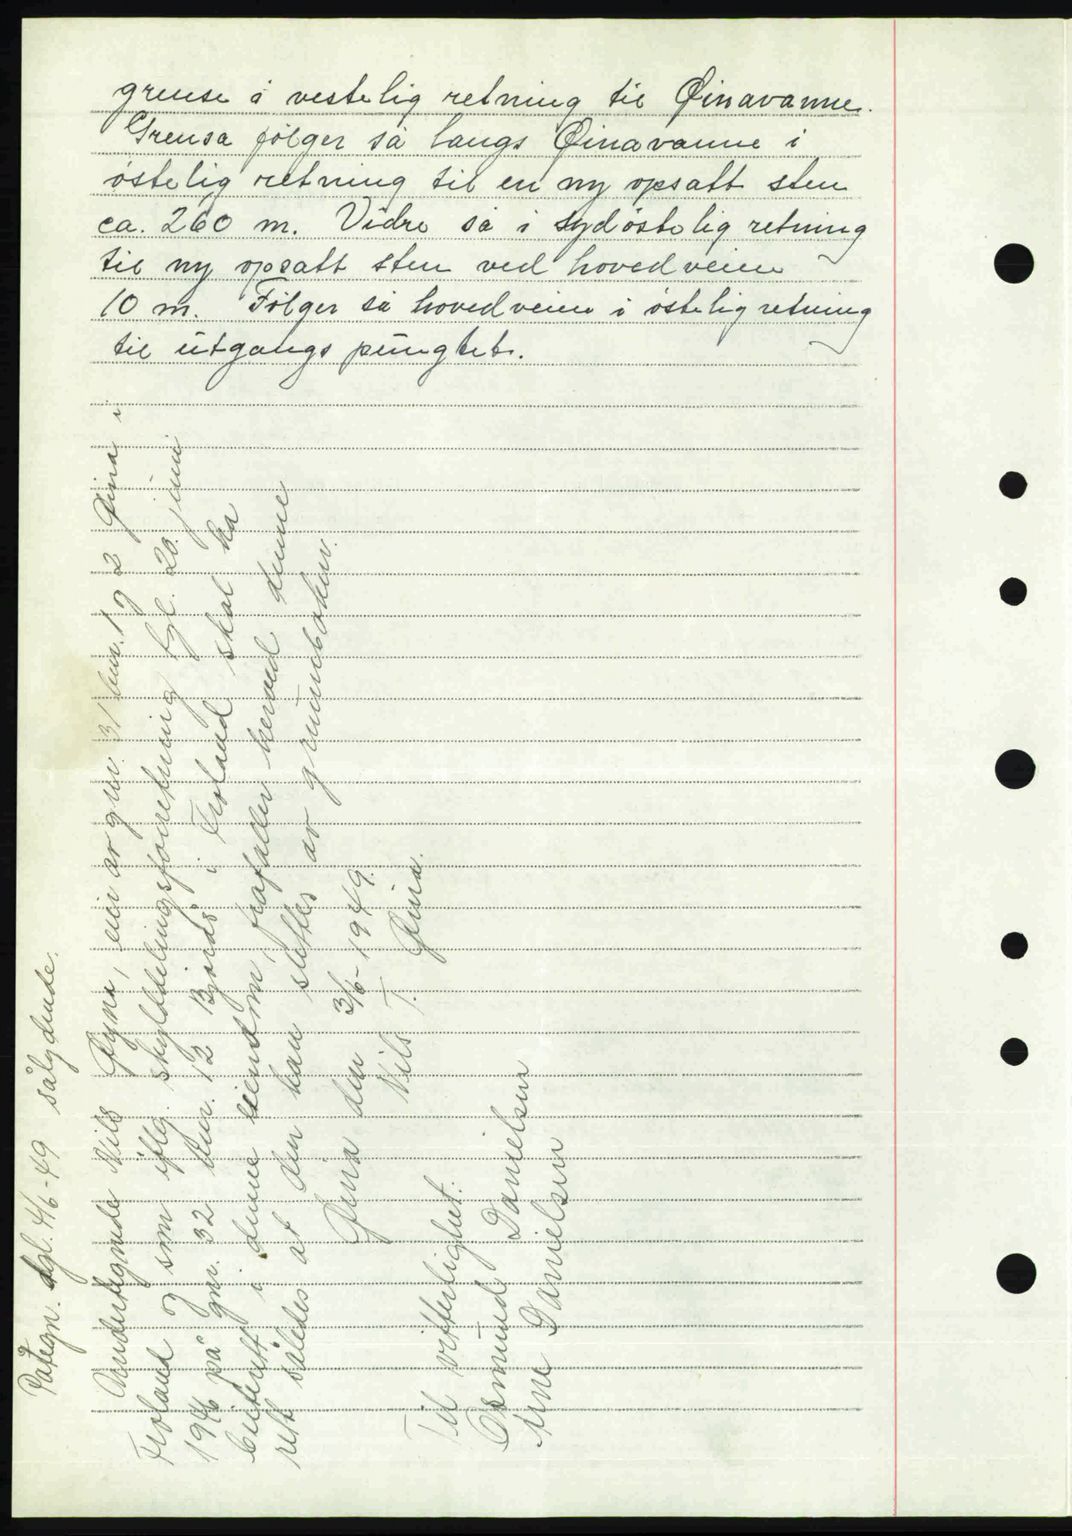 grense i vestelig retning til Øinavanne.
Grensa følger så langs Øinavanne i
østelig retning til en ny opsatt sten
ca. 260 m. Vidre så i sydøstelig retning
til ny opsatt sten ved hovedveien
10 m. Følger så hovedveien i østelig retning
til utgangs pungtet.
Påtegn. dgl. 4/6-49 sålydende.
Undertegnede Nils Øyna, eier av gnr. 31 bnr. 1 og 2 Øina i
Froland og som iflg. skylddelingsforretning tgl. 20. juni
1946 på gnr. 32 bnr. 12 i Froland skal ha
beiterett i denne eiendom, frafaller herved denne
rett således at den kan slettes av grunnboken.
Øina den 3/6-1949.
Nils T. Øina.
Til vitterlighet:
Osmund Danielsen
Arne Danielsen